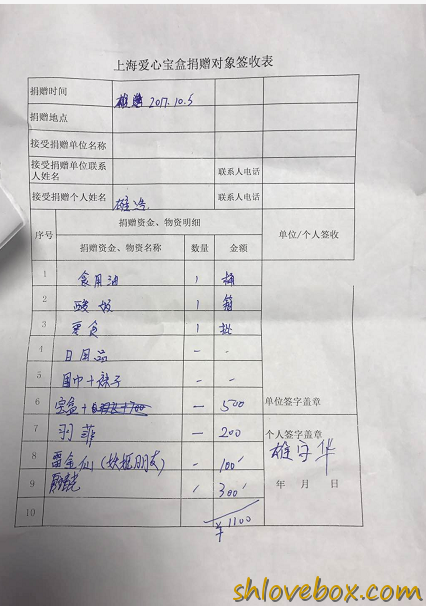 上海爱心宝盒捐赠对象签收表
捐赠时间 2017.10.5
捐赠地点
接受捐赠单位名称
接受捐赠单位联系人姓名 联系人电话
接受捐赠个人姓名 联系人电话
序号 捐赠资金、物资明细 单位/个人签收
捐赠资金、物资名称 数量 金额
1 食用油 1 桶
2 酸奶 1 箱
3 零食 1 批
4 日用品 - -
5 围巾+袜子 - -
6 宝盒+ — 500
单位签字盖章
7 羽菲 — 200
个人签字盖章
8 雷金仙(妖姬朋友) - 100
9 300
年 月 日
10
¥1100
shlovebox.com